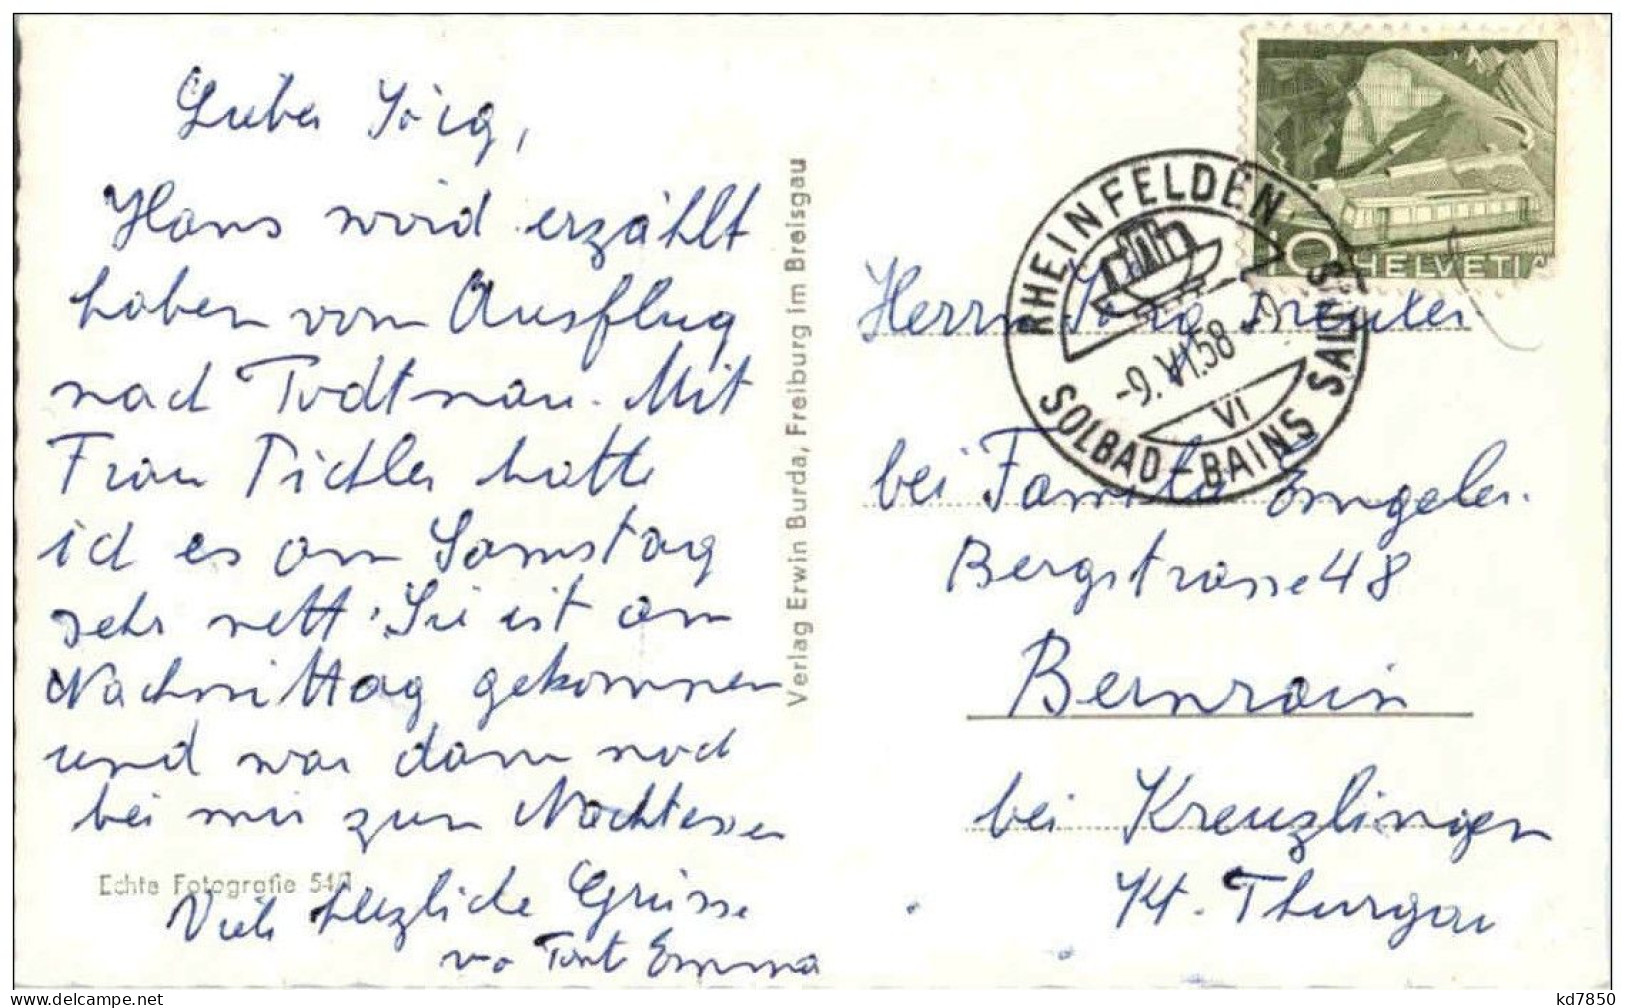 Lieber Jörg,
Hans wird erzählt
haben vom Ausflug
nach Todtnau. Mit
Frau Pichler hatte
ich es am Samstag
sehr nett. Sie ist am
Nachmittag gekommen
und war dann noch
bei mir zum Nachtessen
Viele herzliche Grüsse
von Tante Emma
Echte Fotografie
Verlag Erwin Burda, Freiburg im Breisgau
RHEINFELDEN
SOLBAD-BAINS SALINS
-9.VI.58
VI
10 HELVETIA
Herrn Jörg
bei Familie Engeler.
Bergstrasse 48
Bernrain
bei Kreuzlingen
Kt. Thurgau
kd7850